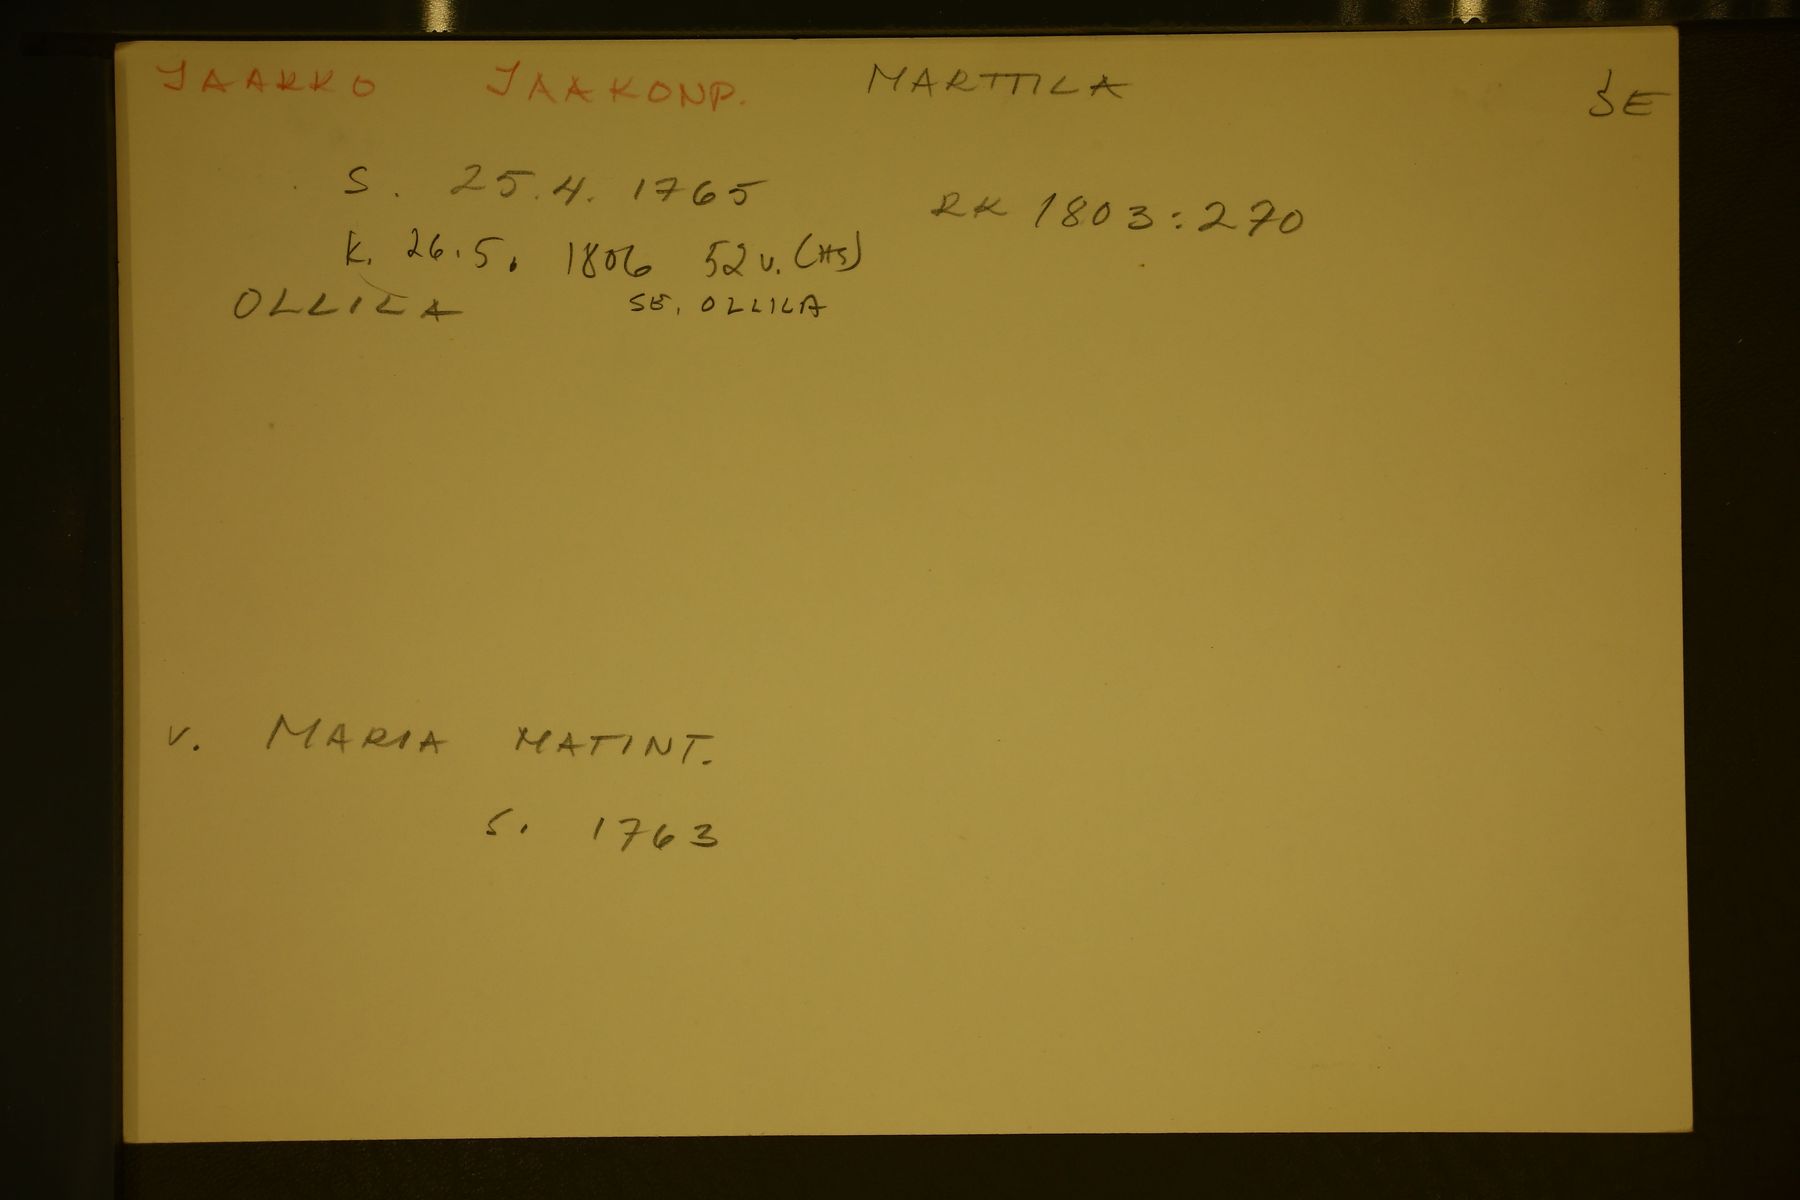 JAAKKO JAAKONP. MARTTILA SE
S. 25.4. 1765 RK 1803:270
k. 26.5. 1806 52 v. (HS)
OLLILA SE, OLLILA
V. MARIA MATINT.
S. 1763